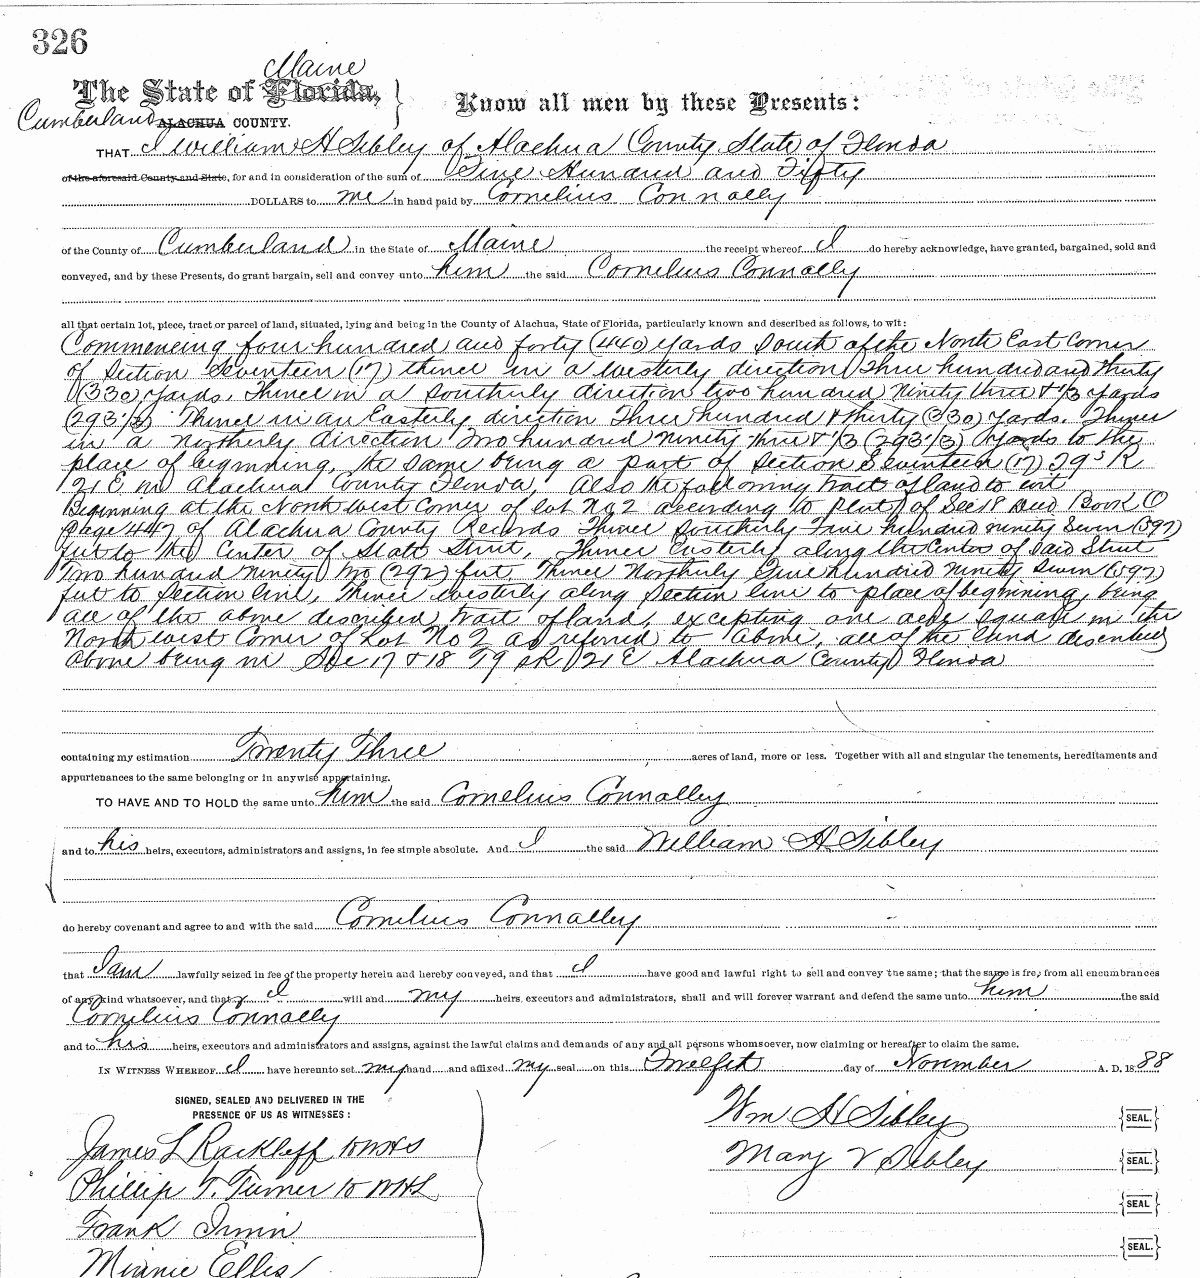 326
Maine
The State of Florida,
Cumberland ALACHUA COUNTY.
Know all men by these Presents:
THAT I William H Sibley of Alachua County State of Florida
of the aforesaid County and State, for and in consideration of the sum of Five Hundred and Fifty
DOLLARS to me in hand paid by Cornelius Connally
of the County of Cumberland in the State of Maine the receipt whereof I do hereby acknowledge, have granted, bargained, sold and
conveyed, and by these Presents, do grant bargain, sell and convey unto him the said Cornelius Connolly
all that certain lot, piece, tract or parcel of land, situated, lying and being in the County of Alachua, State of Florida, particularly known and described as follows, to wit:
Commencing four hundred and forty (440) yards South of the North East Corner
of Section Seventeen (17) thence in a westerly direction Three hundred and thirty
(330) yards, Thence in a Southerly direction two hundred Ninety three & 1/3 yards
(293 1/3) Thence in an Easterly direction Three hundred & thirty (330) yards. Thence
in a northerly direction Two hundred ninety three & 1/3 (293 1/3) yards to the
place of beginning, the same being a part of Section Seventeen (17) T9 S R
21 E in Alachua County Florida, Also the following tract of land to wit
Beginning at the North west Corner of lot No 2 according to Plat of Sec 18 Deed Book O
page 447 of Alachua County Records Thence Southerly Five hundred ninety Seven (597)
feet to the Center of State Street, Thence Easterly along the Center of Said Street
Two hundred ninety two (292) feet. Thence Northerly Five hundred ninety Seven (597)
feet to Section line, Thence westerly along Section line to place of beginning, being
all of the above described tract of land, excepting one acre Square in the
North west Corner of Lot No 2 as referred to above, all of the land described
above being in Sec 17 & 18 T9 S R 21 E Alachua County Florida
containing my estimation Twenty Three acres of land, more or less. Together with all and singular the tenements, hereditaments and
appurtenances to the same belonging or in anywise appertaining.
TO HAVE AND TO HOLD the same unto him the said Cornelius Connolley
and to his heirs, executors, administrators and assigns, in fee simple absolute. And I the said William H Sibley
do hereby covenant and agree to and with the said Cornelius Connalley
that I am lawfully seized in fee of the property herein and hereby conveyed, and that I have good and lawful right to sell and convey the same; that the same is free from all encumbrances
of any kind whatsoever, and that I will and my heirs, executors and administrators, shall and will forever warrant and defend the same unto him the said
Cornelius Connolly
and to his heirs, executors and administrators and assigns, against the lawful claims and demands of any and all persons whomsoever, now claiming or hereafter to claim the same.
IN WITNESS WHEREOF I have hereunto set my hand and affixed my seal on this Twelfth day of November A. D. 1888
SIGNED, SEALED AND DELIVERED IN THE
PRESENCE OF US AS WITNESSES:
Wm H Sibley SEAL.
James L Rackleff to WHS
Mary V Sibley SEAL.
Phillip T. Turner to WHS
SEAL.
Frank Irwin
SEAL.
Minnie Ellis